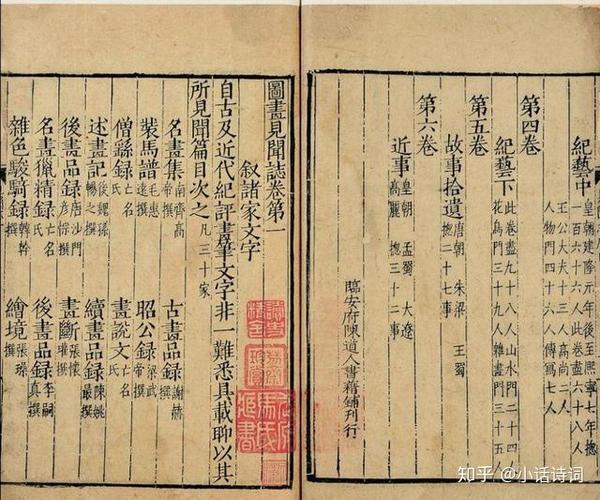 紀藝中 皇朝建隆元年後至熙寧七年揔
一百六十六人此卷盡六十八人
王公大夫十三人高尚二人
人物門四十六人傳寫七人
第四卷
紀藝下 此卷盡九十八人山水門二十四人
花鳥門三十九人雜畫門三十五人
第五卷
故事拾遺 唐朝 朱梁 王蜀
揔二十七事
第六卷
近事 皇朝 孟蜀 大遼
高麗 揔三十二事
臨安府陳道人書籍鋪刊行
圖畫見聞誌卷第一
叙諸家文字
自古及近代紀評畫筆文字非一難悉具載聊以其
所見聞篇目次之 凡三十家
名畫集 南齊高帝撰 古畫品錄 謝赫撰
裝馬譜 毛惠遠撰 昭公錄 梁武帝撰
僧繇錄 亡名氏 畫說文 亡名氏
述畫記 後魏孫暢之撰 續畫品錄 陳姚最撰
後畫品錄 唐沙門彦悰撰 畫斷 張懷瓘撰
名畫獵精錄 亡名氏 後畫品錄 李嗣真撰
雜色駿騎錄 韓幹撰 繪境 張璪撰
知乎 @小话诗词